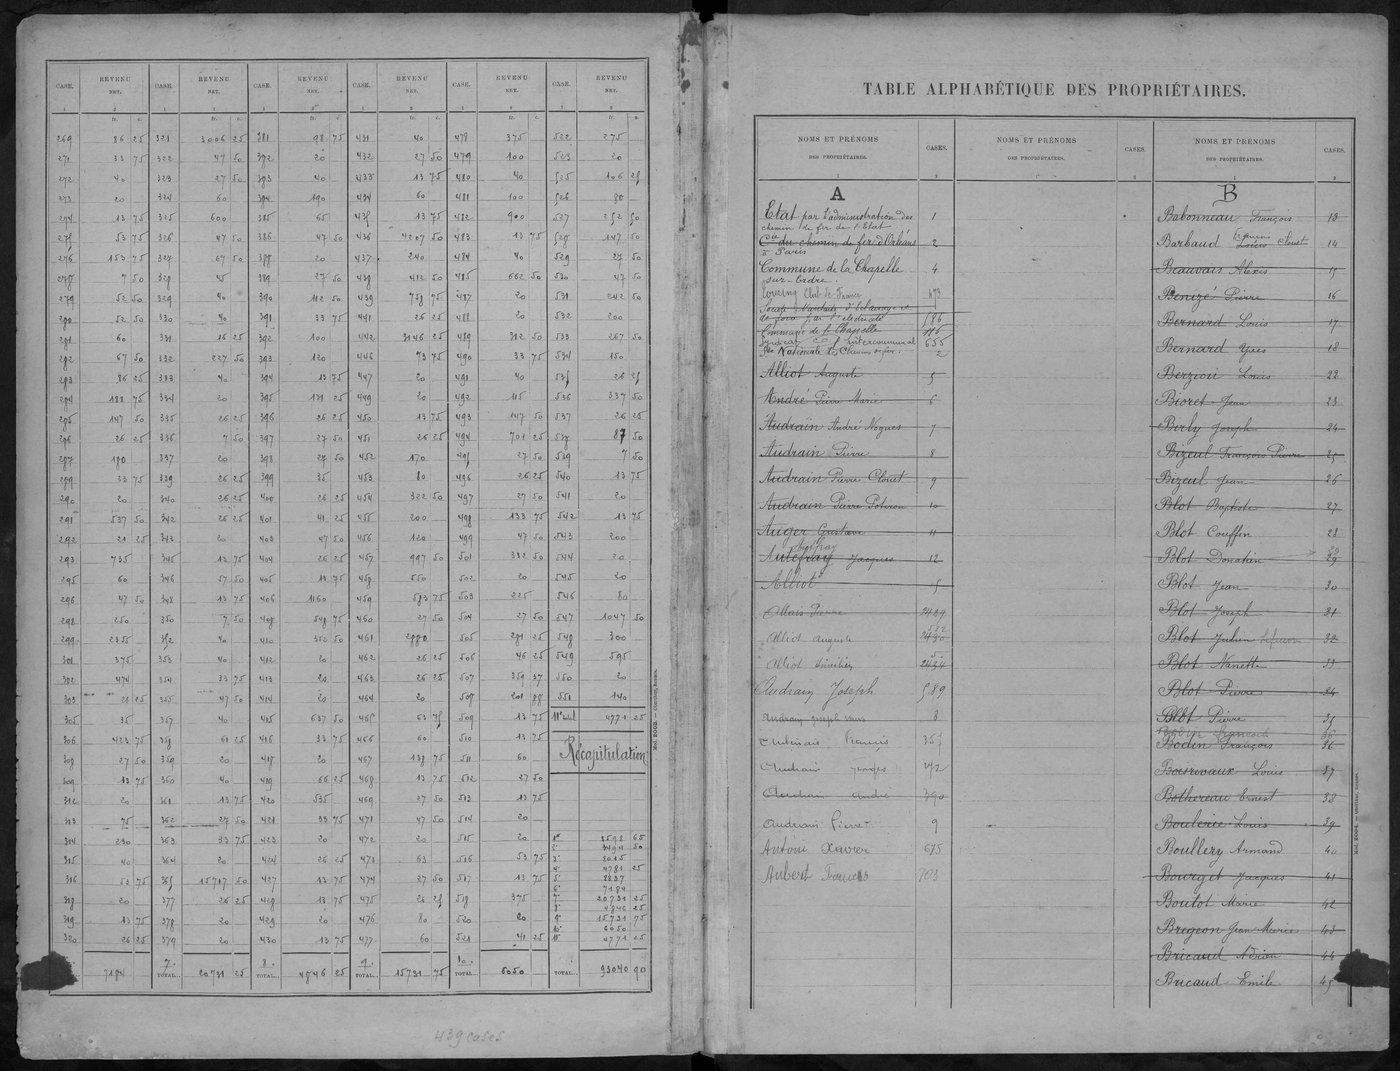 CASE. REVENU NET. CASE. REVENU NET. CASE. REVENU NET. CASE. REVENU NET. CASE. REVENU NET. CASE. REVENU NET.
1 2 1 2 1 2 1 2 1 2 1 2
fr. c. fr. c. fr. c. fr. c. fr. c. fr. c.
269 86 25 321 3006 25 381 98 75 431 40 478 375 522 275
271 33 75 322 47 50 382 20 432 27 50 479 100 523 20
272 40 323 27 50 383 40 433 13 75 480 40 525 106 25
273 20 324 60 384 190 434 60 481 100 526 80
274 13 75 325 600 385 65 435 13 75 482 900 527 252 50
275 53 75 326 47 50 386 47 50 436 4207 50 483 13 75 528 147 50
276 153 75 327 67 50 387 20 437 240 484 40 529 27 50
278 7 50 328 45 389 27 50 438 412 50 485 662 50 530 47 50
279 52 50 329 40 390 112 50 439 758 75 487 20 531 242 50
280 52 50 330 40 391 33 75 441 26 25 488 20 532 200
281 60 331 26 25 392 100 442 3146 25 489 312 50 533 267 50
282 67 50 332 227 50 393 120 446 73 75 490 33 75 534 150
283 86 25 333 40 394 13 75 447 20 491 40 535 26 25
284 188 75 334 20 395 131 25 449 20 492 115 536 337 50
285 147 50 335 26 25 396 26 25 450 13 75 493 147 50 537 26 25
286 26 25 336 7 50 397 27 50 451 26 25 494 701 25 538 87 50
287 180 337 20 398 27 50 452 170 495 27 50 539 7 50
289 33 75 339 26 25 399 35 453 80 496 26 25 540 13 75
290 20 340 26 25 400 26 25 454 322 50 497 27 50 541 20
291 537 50 342 26 25 401 41 25 455 200 498 133 75 542 13 75
292 21 25 343 20 403 47 50 456 120 499 47 50 543 200
293 735 345 13 75 404 26 25 457 997 50 501 382 50 544 20
295 60 346 57 50 405 13 75 458 550 502 20 545 20
296 47 50 348 13 75 406 1160 459 583 75 503 225 546 80
298 250 350 7 50 408 548 75 460 27 50 504 27 50 547 1047 50
299 2355 352 40 410 352 50 461 2880 505 291 25 548 300
301 375 353 40 412 20 462 26 25 506 46 25 549 595
302 474 354 33 75 413 20 463 26 25 507 359 37 550 20
303 355 47 50 414 20 464 20 508 201 88 551 140
305 35 357 40 415 637 50 465 63 75 509 13 75 11e total 4771 25
306 423 75 358 61 25 416 33 75 466 60 510 13 75
308 27 50 359 20 417 20 467 138 75 511 60 Récapitulation
309 13 75 360 40 419 66 25 468 13 75 512 27 50
312 20 361 13 75 420 535 469 27 50 513 13 75
313 75 362 27 50 421 33 75 471 47 50 514 20
314 230 363 33 75 423 20 472 20 515 20 1e 8598 65
2e 3494 50
315 40 364 20 424 26 25 473 63 516 53 75 3e 8015
4e 4781 25
316 53 75 365 15717 50 427 13 75 474 27 50 517 13 75 5e 8837
6e 7184
318 20 377 26 25 428 13 75 475 26 25 518 375 7e 20731 25
8e 4846 25
319 13 75 378 20 429 20 476 80 520 20 9e 15731 75
10e 6050
320 26 25 379 20 430 13 75 477 60 521 41 25 11e 4771 25
7184 7. TOTAL... 20731 25 8. TOTAL... 4846 25 9. TOTAL... 15731 75 10. TOTAL... 6050 TOTAL... 93040 90
439 cases
TABLE ALPHABÉTIQUE DES PROPRIÉTAIRES.
NOMS ET PRÉNOMS DES PROPRIÉTAIRES. CASES. NOMS ET PRÉNOMS DES PROPRIÉTAIRES. CASES. NOMS ET PRÉNOMS DES PROPRIÉTAIRES. CASES.
A
Etat par l'administration des 1
chemin de fer de l'Etat
Cie du chemin de fer d'Orléans 2
à Paris
Commune de la Chapelle 4
sur-Erdre.
Touring Club de France 473
Société Nantaise d'éclairage et
de force par l'électricité 586
Commune de la Chapelle
Syndicat intercommunal 655
Sté Nationale des Chemins de fer. 2
Alliot Auguste 5
André Pierre Marie 6
Audrain André Nogues 7
Audrain Pierre 8
Audrain Pierre Clouet 9
Audrain Pierre Potiron 10
Auger Gustave 11
Autefray Jacques 12
Alliot 5
Allais Pierre
Alliot Auguste
Alliot
Audrain Joseph 589
Audrain Joseph 8
Francis 357
Audrain Georges 272
Audrain André 390
Audrain Pierre 9
Antoni Xavier 675
Aubert Francis 703
B
Babonneau François 13
Barbaud Louis Clouet 14
Beauvais Alexis 15
Benizé Pierre 16
Bernard Louis 17
Bernard Yves 18
Berziou Louis 22
Bioret Jean 23
Birly Joseph 24
Bizeul François Pierre 25
Bizeul Jean 26
Blot Baptiste 27
Blot Couffin 28
Blot Donatien 29
Blot Jean 30
Blot Joseph 31
Blot Julien 32
Blot Nanette 33
Blot Pierre 34
Blot Pierre 35
Bodin François 36
Boisrivaux Louis 37
Bothereau Ernest 38
Boulerie Louis 39
Boullery Armand 40
Bourget Jacques 41
Boutot Marie 42
Bregeon Jean Marie 43
Bricaud Adrien 44
Bricaud Emile 45